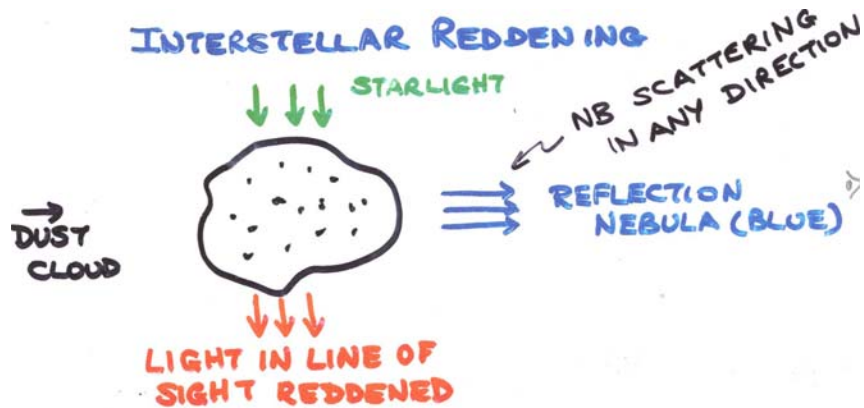 INTERSTELLAR REDDENING
STARLIGHT
NB SCATTERING
IN ANY DIRECTION
REFLECTION
NEBULA (BLUE)
DUST
CLOUD
LIGHT IN LINE OF
SIGHT REDDENED